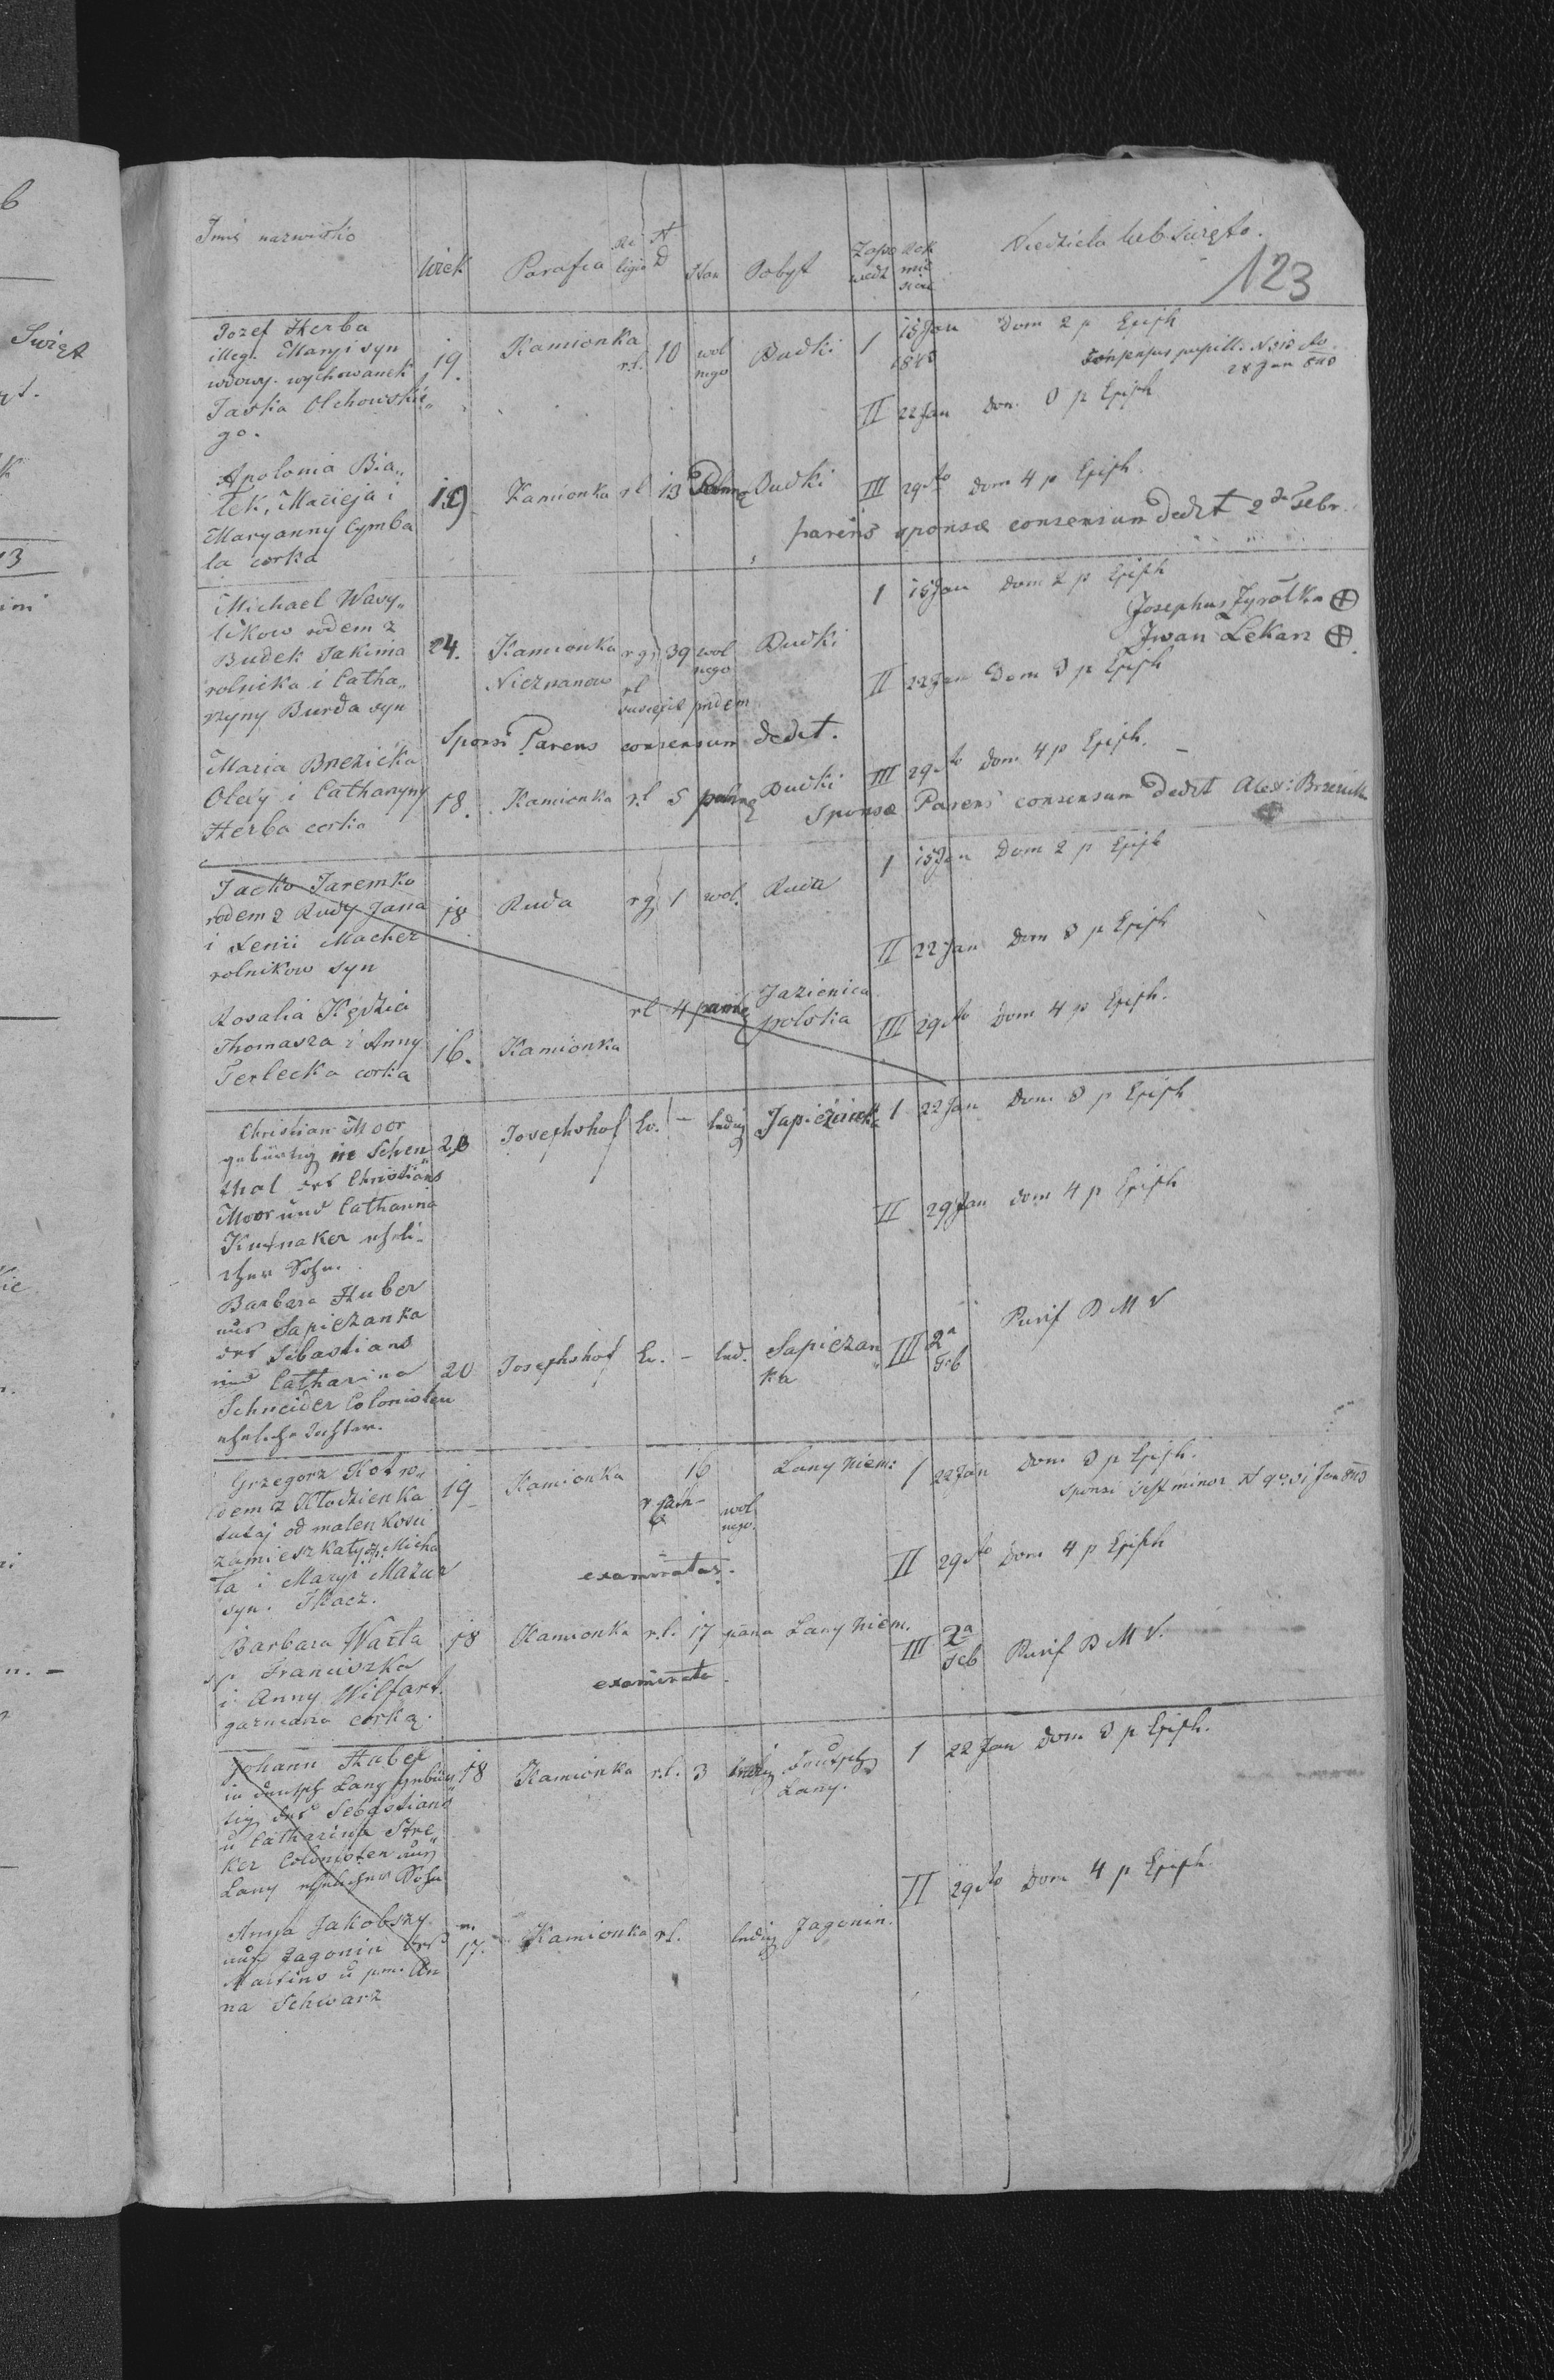 Imię nazwisko
wiek Parafia Religia N D Stan Pobyt Zapowiedz Rok miesiąc Niedziela lub święto.
123
Jozef Herba
illeg. Maryi syn
wdowy. wychowanek
Jaśka Olchowskie„
go.
19. Kamionka r.l. 10 wol nego Budki I 15 Jan 1843 Dom 2 p Epiph
Consensus pupill. N 313 do.
28 Jan 843
II 22 Jan Dom 3 p Epiph
Apolonia Bia„
łek, Macieja i
Maryanny Cymba
la corka
19 Kamionka rl 13 Budki III 29 dto Dom 4 p Epiph.
parens sponsæ consensum dedit 2da Febr.
Michael Wavy„
likow rodem z
Budek Jakima
rolnika i Catha„
rzyny Burda syn
24. Kamionka rg 39 wol nego Budki I 15 Jan Dom 2 p Epiph
Nieznanow rl
Josephus Zyrołka ⊕
Iwan Lekarz ⊕.
II 22 Jan Dom 3 p Epiph
Sponsi Parens consensum dedit.
Maria Brezicka
Olexy i Catharyny
Herba corka
18. Kamionka r.l 5 Budki III 29 dto Dom 4 p Epiph. –
Sponsæ Parens consensum dedit Alex: Brzezicki
Jacko Jaremko
rodem z Rudy Jana
i Xenii Macher
rolnikow syn
18 Ruda rg 1 wol. Ruda I 15 Jan Dom 2 p Epiph
II 22 Jan Dom 3 p Epiph
Rosalia Kędzia
Thomasza i Anny
Terlecka corka
16. Kamionka rl 4 panna Jazienica polska III 29 dto Dom 4 p Epiph.
Christian Moor
gebürtig in Schen„
thal des Christians
Moor und Catharina
Kutnaker eheli„
cher Sohn.
23 Josephshof Ev. – ledig Sapiezanka I 22 Jan Dom 3 p Epiph
II 29 Jan Dom 4 p Epiph
Barbara Huber
aus Sapiezanka
des Sebastians
und Catharina
Schneider Colonisten
eheliche Tochter.
20 Josephshof Ev. – led. Sapiezan„ ka III 2a Feb Purif B M V
Grzegorz Kot ro„
dem z Kłodzienka
tutaj od malenkosci
zamieszkały, Micha
ła i Maryi Mazur
syn. Tkacz.
19 Kamionka 16 wol nego. Lany niem: I 22 Jan Dom 3 p Epiph.
sponsi test minor N 90. 31 Jan 843
examinatus.
II 29 dto Dom 4 p Epiph
Barbara Warta
Franciszka
i Anny Wilfart.
garncarza corka.
18 Kamionka r.l. 17 pana Lany niem. III 2a Feb Purif B M V.
examinata.
Johann Huber
in deutsch Lany gebür„
tig des Sebastians
u Catharina Stre„
ker Colonisten aus
Lany ehelicher Sohn
18 Kamionka r.l. 3 ledig Deutsch Lany. I 22 Jan Dom 3 p Epiph.
II 29 dto Dom 4 p Epiph.
Anna Jakobszy
aus Zagonin des
Martins u An
na Schwarz
17. Kamionka rl. ledig Zagonin.